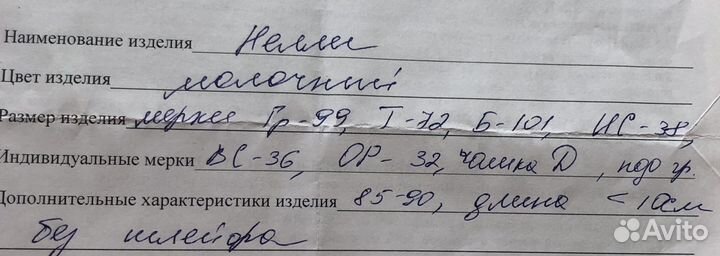 Наименование изделия Нелли
Цвет изделия молочный
Размер изделия мерки Гр-99, Т-72, Б-101, ИС-38,
Индивидуальные мерки ВС-36, ОР-32, чашка D, под гр.
Дополнительные характеристики изделия 85-90, длина <10см
без шлейфа
Avito